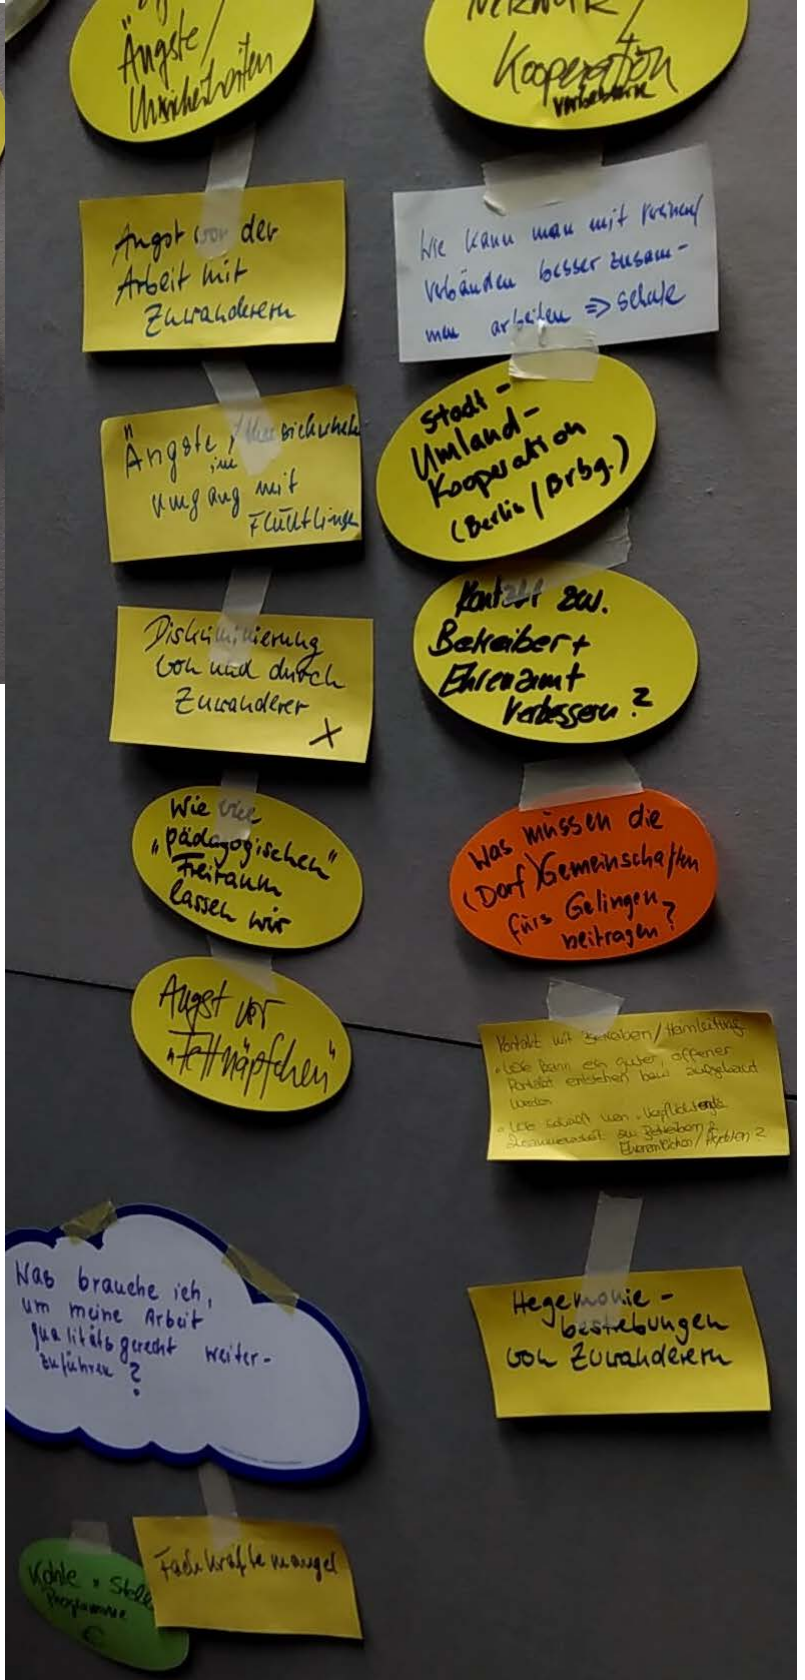 Ängste/
Unsicherheiten
Angst vor der
Arbeit mit
Zuwanderern
Ängste / Unsicherheit
im
Umgang mit
Flüchtlingen
Diskriminierung
von und durch
Zuwanderer
X
Wie viel
"pädagogischen"
Freiraum
lassen wir
Angst vor
"Fettnäpfchen"
Was brauche ich,
um meine Arbeit
qualitätsgerecht weiter-
zuführen?
Kohle + Stell
Programme
€
Fachkräftemangel
Netzwerk/
Kooperation
verbessern
Wie kann man mit
verbänden besser zusam-
men arbeiten => Schule
Stadt-
Umland-
Kooperation
(Berlin/Brbg.)
Kontakt zw.
Betreiber +
Ehrenamt
verbessern?
Was müssen die
(Dorf)Gemeinschaften
fürs Gelingen
beitragen?
Kontakt mit Betreiben/Heimleitung
• Wie kann ein guter, offener
Kontakt entstehen bzw aufgebaut
werden
• Wie schafft man
Zusammenarbeit zw Betreibern &
Ehrenamtlichen
Hegemonie-
bestrebungen
von Zuwanderern